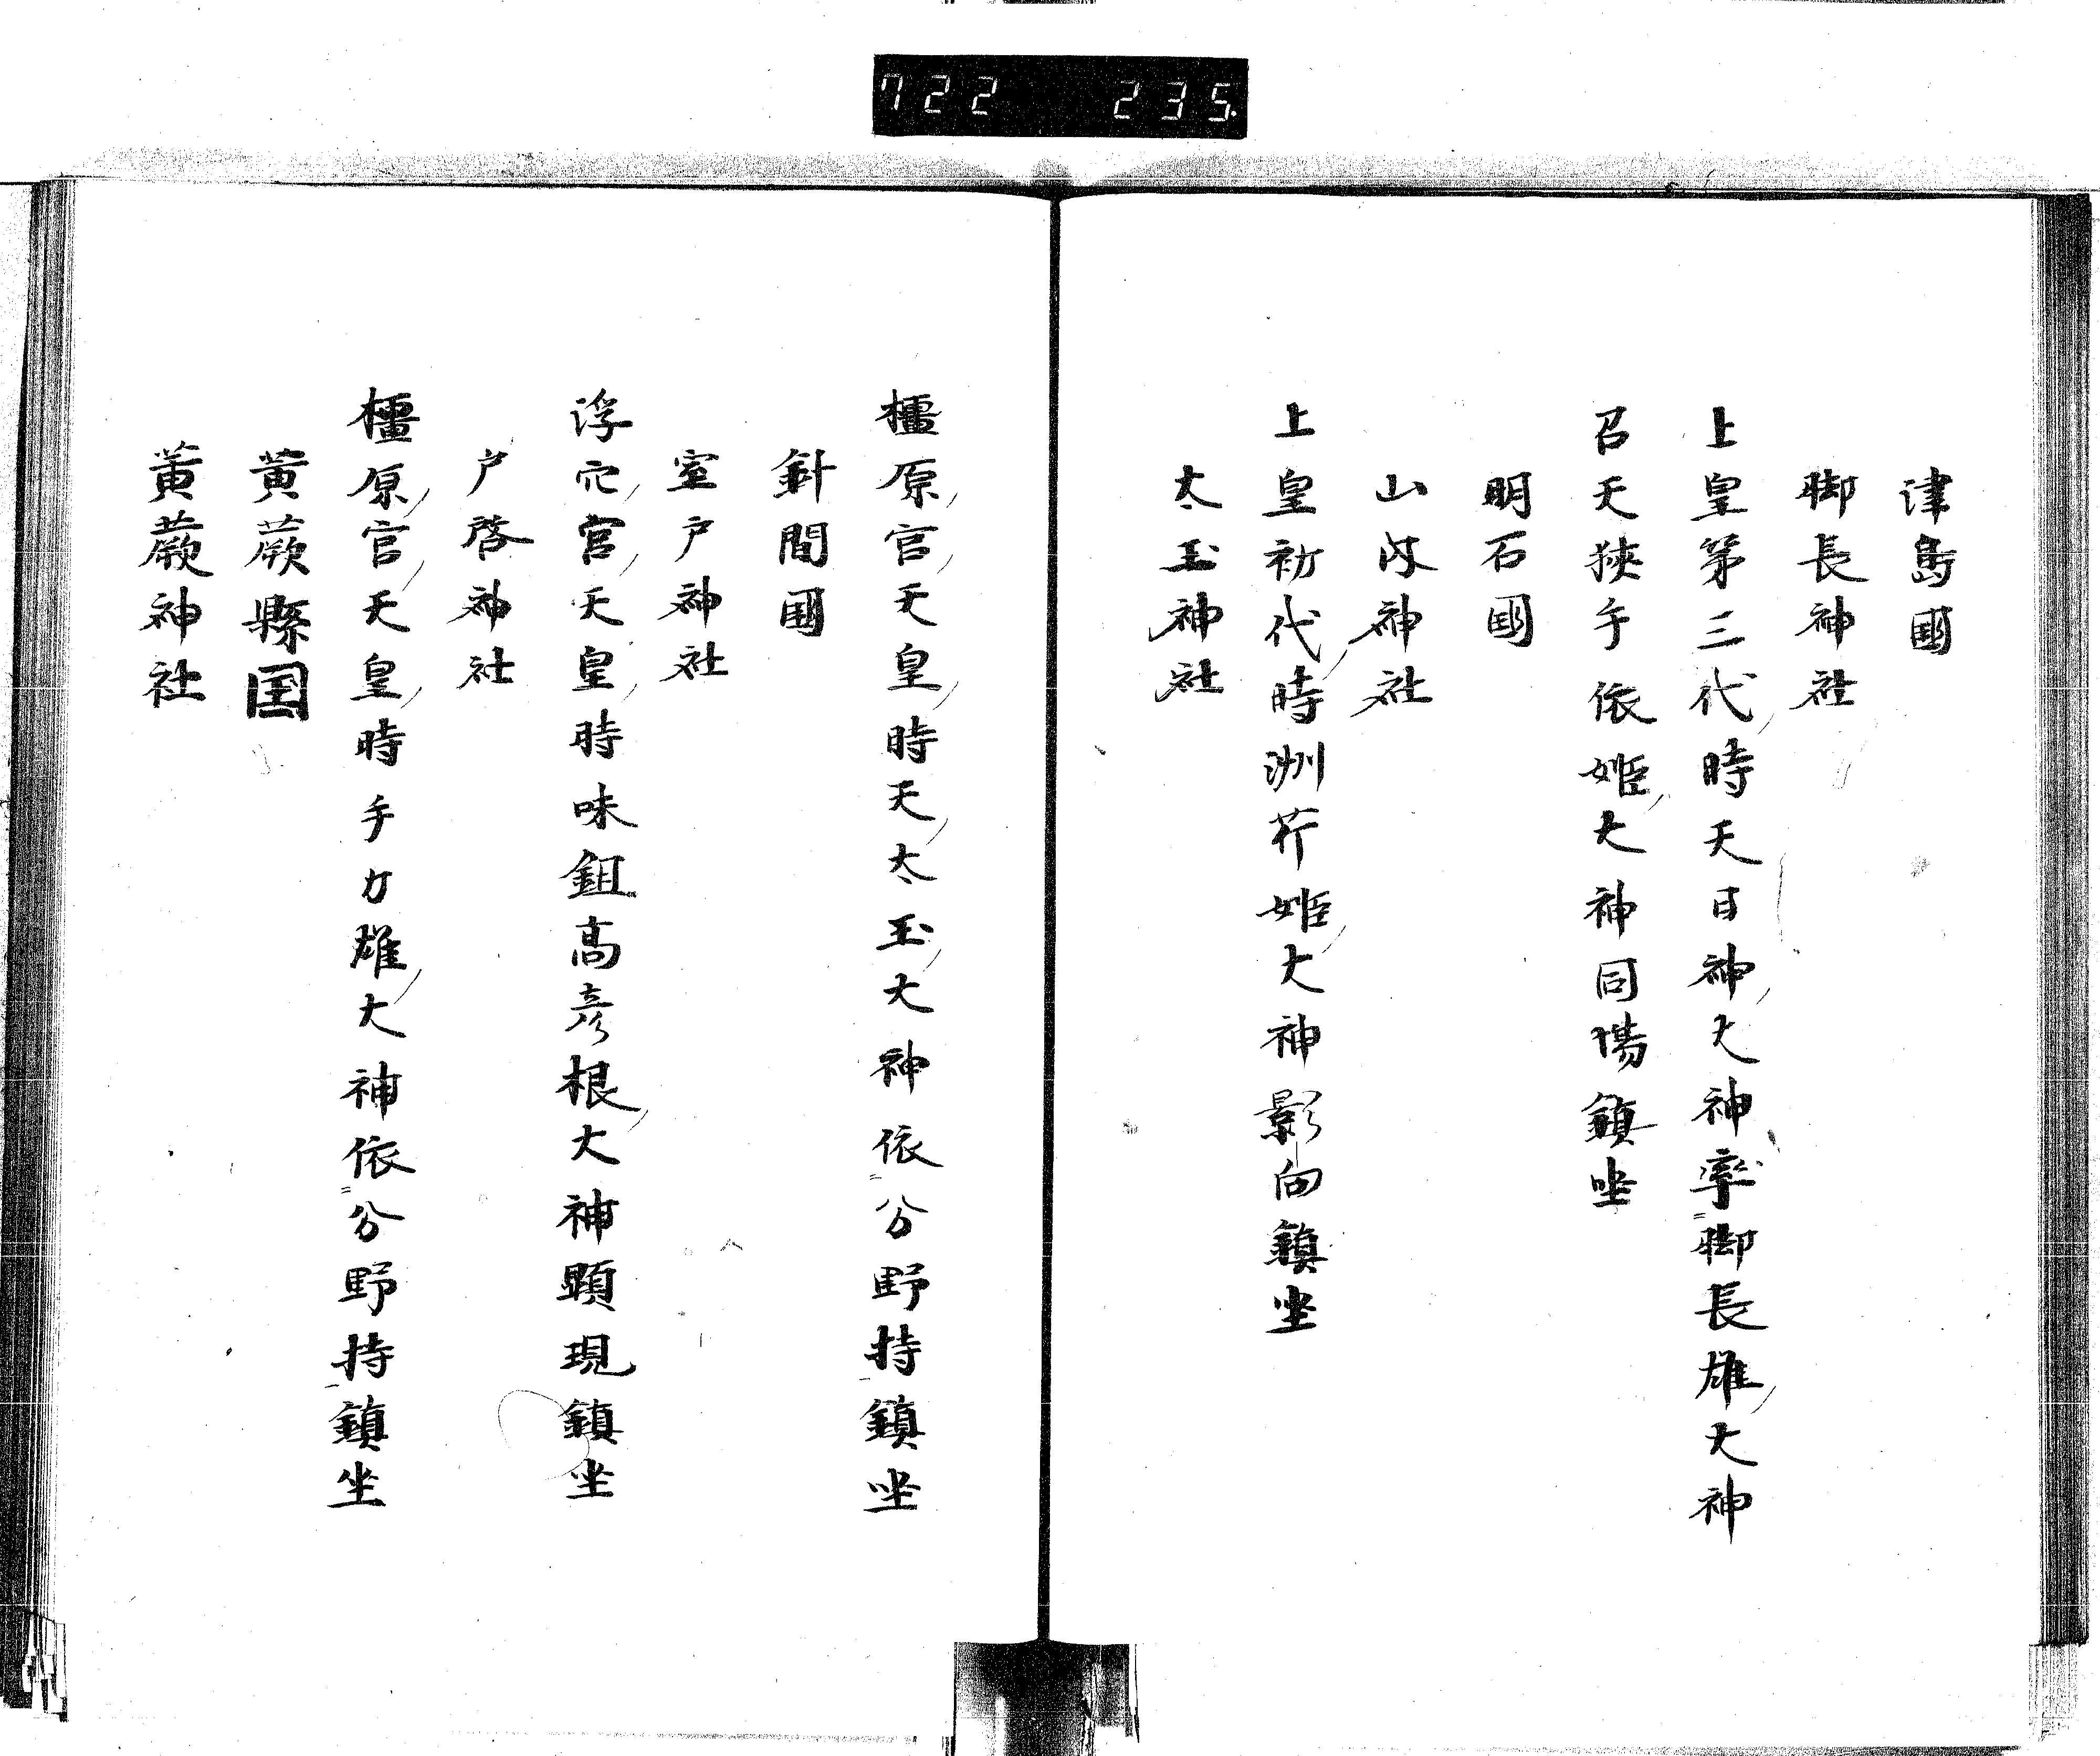 722 235
津島國
脚長神社
上皇第三代時天日神大神率脚長雄大神
召天狹手依姫大神同場鎮坐
明石國
山神社
上皇初代時洲芹姫大神影向鎮坐
太玉神社
橿原宮天皇時天太玉大神依分野持鎮坐
針間國
室戸神社
浮穴宮天皇時味鉏高彦根大神顕現鎮坐
戸啓神社
橿原宮天皇時手力雄大神依分野持鎮坐
黄蕨縣国
黄蕨神社